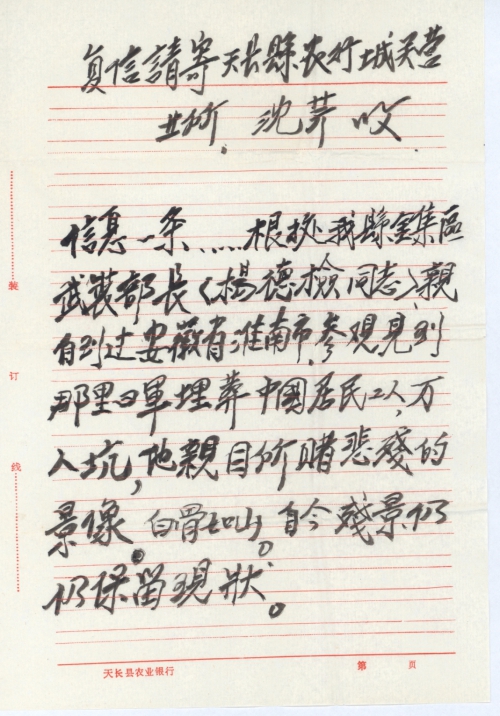 复信請寄天长縣农行城关营
业所 沈荓 收
信息一条……根挍我縣金集區
武裝部长（楊德檢同志）親
自到过安徽省淮南市参观見到
那里日軍埋葬中國居民工人，万
人坑，他親目所睹悲殘的
景像。白骨如山。自今殘景仍
仍保留現狀。
装
订
线
天长县农业银行 第 页